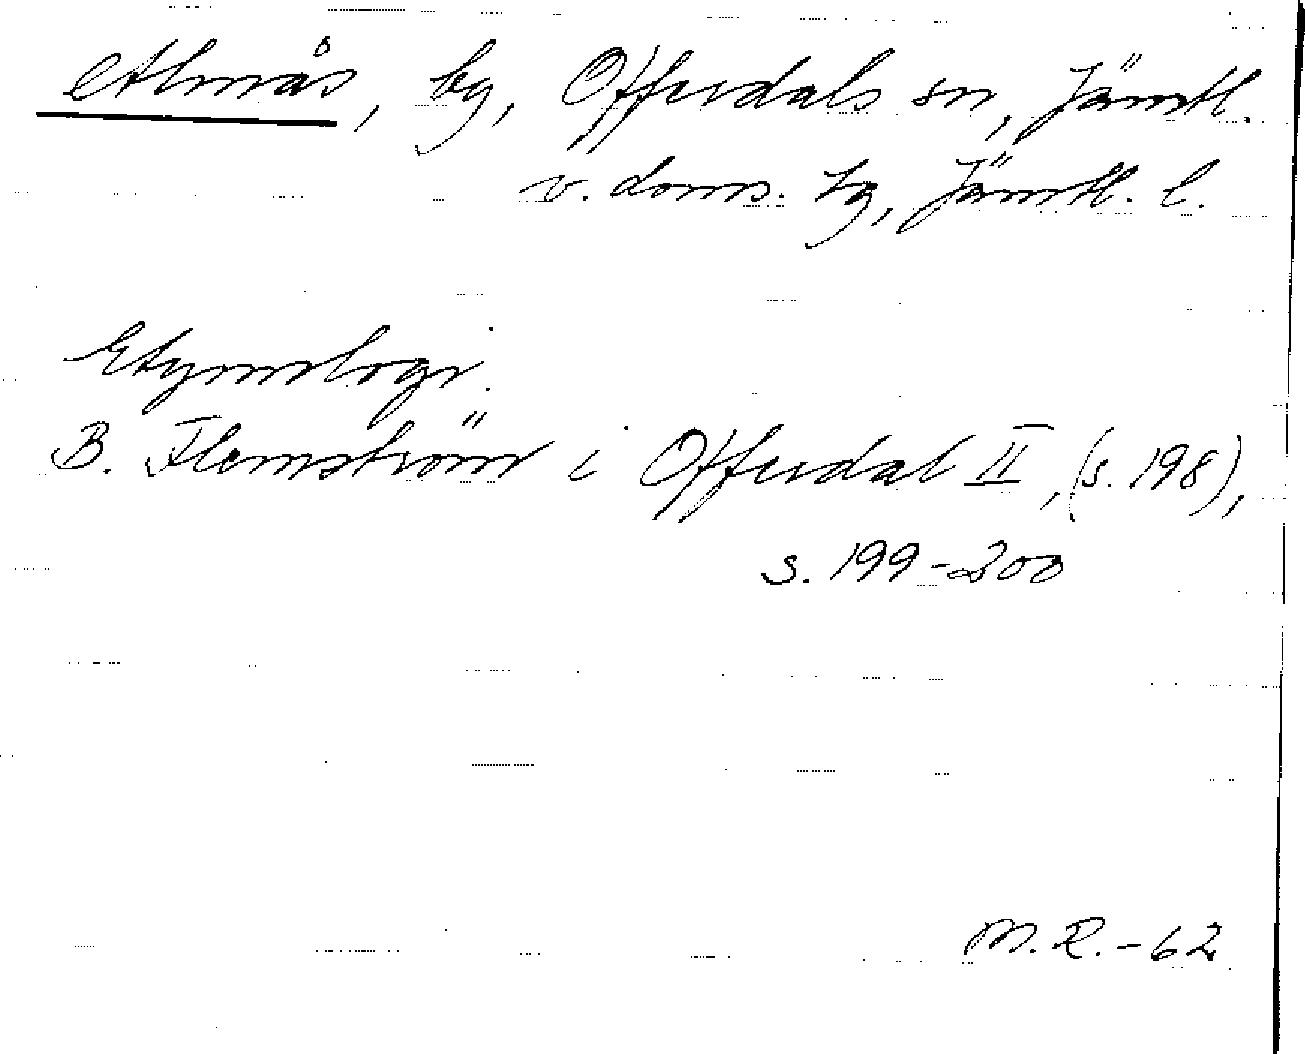 Almås, by, Offerdals sn, Jämtl.
v. doms. tg, Jämtl. l.
Etymologi.
B. Flemström i Offerdal II, (s. 198),
s. 199-200
M.R.-62